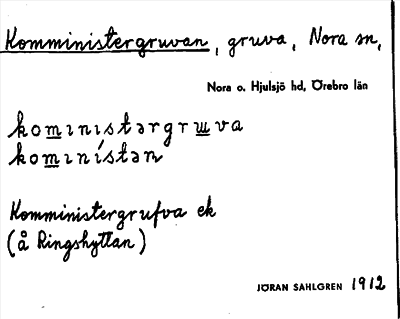 Komministergruvan, gruva, Nora sn,
Nora o. Hjulsjö hd, Örebro län
kom̲ınıstərgru̲va
kom̲ınístən
Komministergrufva ek
(å Ringshyttan)
JÖRAN SAHLGREN 1912